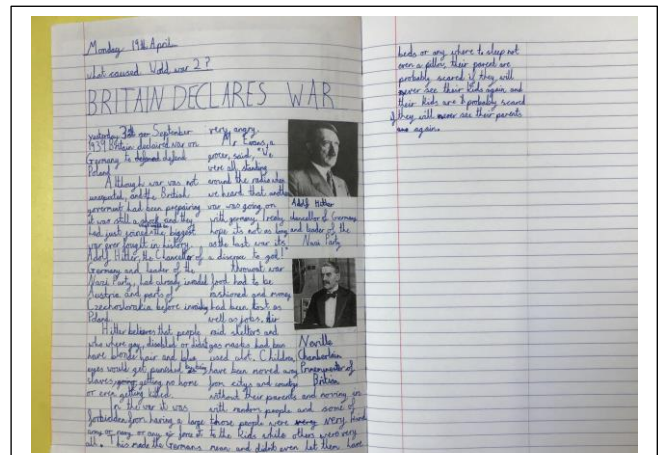 Monday 19th April
what caused World war 2?
BRITAIN DECLARES WAR
yesterday 3rd on September
1939 Britain declaired war on
Germany to defend
Poland.
Although war was not
unexpected, and the British
goverment had been prepairing
it was still a and they
had just joined the biggest
war ever fought in history.
Adolf Hitler, the Chancellor of
Germany and leader of the
Nazi Party, had already invaded
Austria and parts of
Czechoslovakia before invading
Poland.
Hitler believes that people
who where gay, disabled or didnt
have blonde hair and blue
eyes would get punished, by being
slaves, getting no home
or even getting killed.
In the war it was
forbidden from having a large
army or navy or any air force at
all. This made the Germans
very angry.
Mr Evans, a
grocer, said, "We
were all standing
around the radio when
we heard that another
war was going on
with germany. I really
hope its not as long
as the last war its
a disgrace to god!"
Throwout war
food had to be
rashioned and money
had been lost as
well as jobs. Air
raid shelters and
gas masks had been
used alot. Children
have been moved away
from citys and
without their parents and moving in
with random people and some of
those people were very very kind
to the kids while others were very
mean and didnt even let them have
Adolf Hitler
chancellor of Germany
and leader of the
Nazi Party
Neville
Chamberlain
of
Britian
beds or any where to sleep not
even a pillow, their parent are
probably scared if they will
never see their kids again and
their kids are probably scared
if they will never see their parents
again.